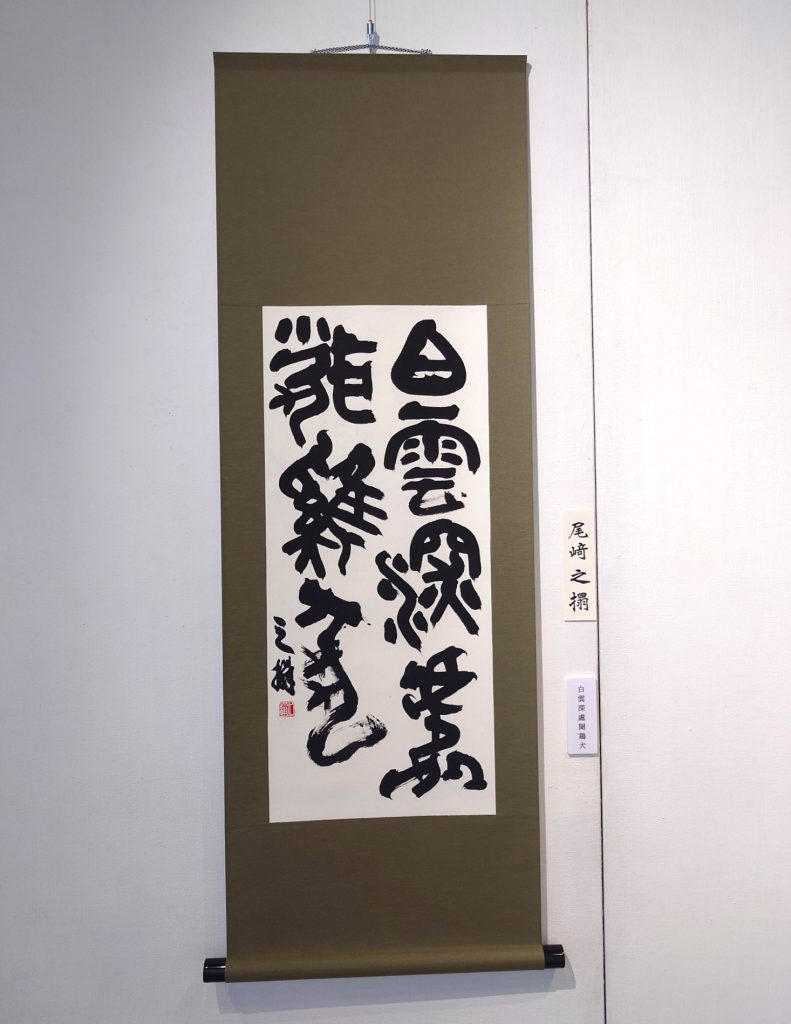 白雲深處
聞雞犬
之搨
尾﨑之搨
白雲深處聞鶏犬